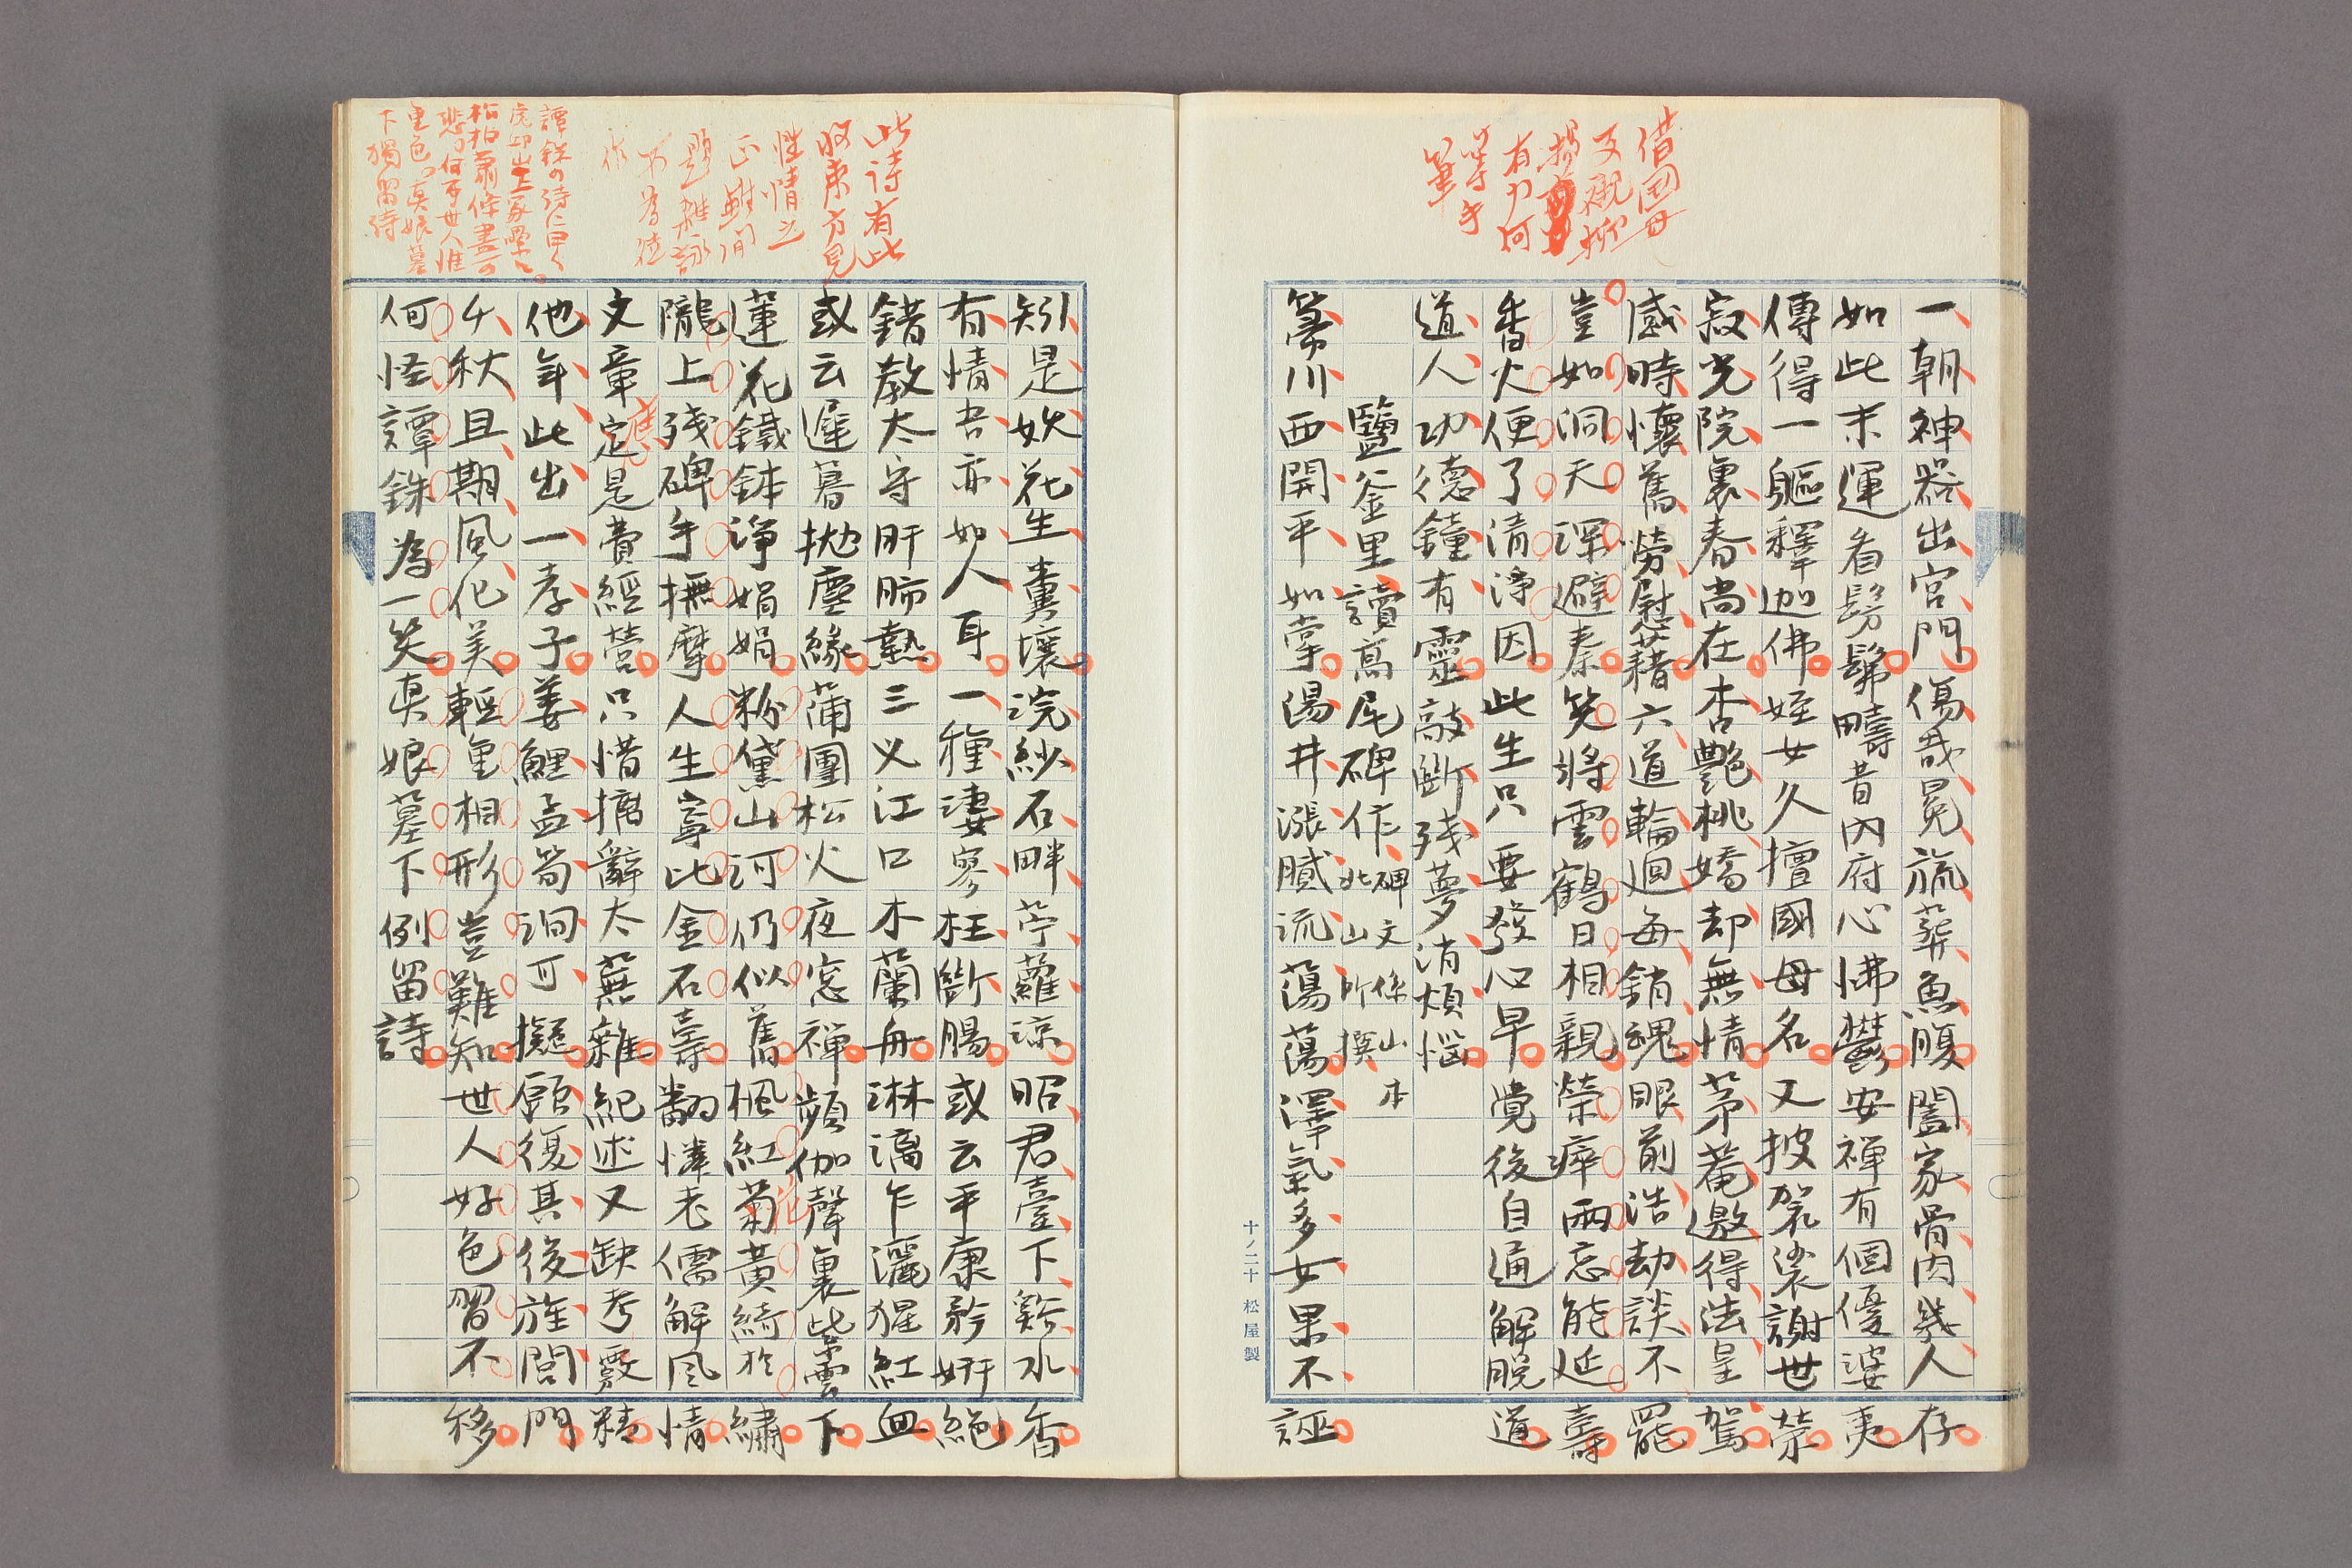 借国母
反襯
有力何
等手
筆
一朝神器出宮門傷哉冕旒葬魚腹闔家骨肉幾人存
如此末運看髣髴疇昔内府心怫鬱安禅有個優婆夷
傳得一軀釋迦佛姪女久擅國母名又披袈裟謝世榮
寂光院裏春尚在杏艷桃嬌却無情茅菴邀得法皇駕
感時懐舊勞慰藉六道輪迴每銷魂眼前浩劫談不罷
豈如洞天深避秦笑將雲鶴日相親榮瘁兩忘能延壽
香火便了清淨因此生只要發心早覺後自通解脱道
道人功德鐘有靈敲斷殘夢消煩惱
鹽釜里讀髙尾碑作碑文係山本
北山所撰
箒川西開平如掌湯井漲膩流蕩蕩澤氣多女果不誣
十ノ二十 松屋製
此詩有此
収束方見
性情之
正雖閒
題雜詠
不為徒
作
譚銖の詩に曰く
虎邱山上冢纍々。
松柏蕭條盡可
悲。何事世人惟
重色。真娘墓
下獨留詩
矧是妖花生糞壤浣紗石畔苧蘿涼昭君臺下谿水香
有情吾亦如人耳一種凄寥枉斷腸或云平康矜妍絕
錯教太守肝腸熱三乂江口木蘭舟淋漓乍灑猩紅血
或云遲暮拋塵緣蒲團松火夜窓禅頻伽聲裏紫雲下
蓮花鐵鉢淨娟娟粉黛山河仍似舊楓紅菊黄綺於繡
隴上殘碑手撫摩人生寧比金石壽翻憐老儒解風情
文章定是費經營只惜摛辭太蕪雜紀述又缺考覈精
他年此出一孝子姜鯉孟筍洵可擬願復其後旌閭門
千秋且期風化美輕重相形豈難知世人好色習不移
何怪譚銖為一笑真娘墓下例留詩